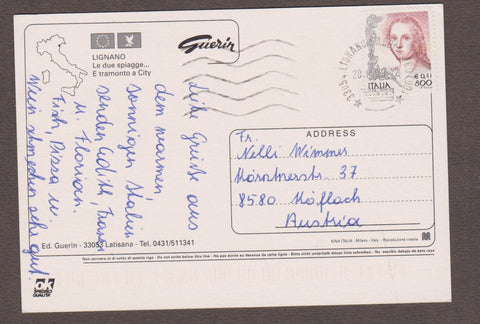 LIGNANO
Le due spiagge...
E tramonto a City
Guerin
33054 LIGNANO
ITALIA
€ 0,41
800
Liebe Grüße aus
dem warmen,
sonnigen Italien
senden Edith, Franz
u. Florian.
Fisch, Pizza u.
Wein schmecken sehr gut.
ADDRESS
Fr.
Nelli Wimmer
37
8580 Köflach
Austria
Ed. Guerin - 33053 Latisana - Tel. 0431/511341
KINA ITALIA - Milano - Italy - Riproduzione vietata
Non scrivere al di sotto di questa riga - Do not write below this line - Ne pas écrire au dessous de cette ligne - Bitte nicht unterhalb dieser Linie schreiben - No escribir debajo de esta raya
ok
SPECIALE
QUALITÀ